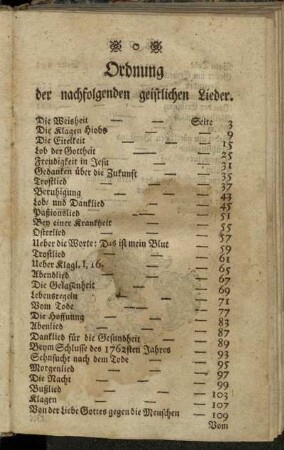 Ordnung
der nachfolgenden geistlichen Lieder.
Die Weisheit — — Seite 3
Die Klagen Hiobs — — 9
Die Eitelkeit — — 15
Lob der Gottheit — — 25
Freudigkeit in Jesu — — 31
Gedanken über die Zukunft — 35
Trostlied — — 37
Beruhigung — — 43
Lob- und Danklied — — 45
Paßionslied — — 51
Bey einer Krankheit — — 55
Osterlied — — 57
Ueber die Worte: Das ist mein Blut 59
Trostlied — — 61
Ueber Klagl. I, 16. — — 65
Abendlied — — 67
Die Gelaßenheit — — 69
Lebensregeln — — 71
Vom Tode — — 77
Die Hoffnung — — 83
Abenlied — — 87
Danklied für die Gesundheit — 89
Beym Schlusse des 1762sten Jahres 93
Sehnsucht nach dem Tode — 95
Morgenlied — — 97
Die Nacht — — 99
Bußlied — — 103
Klagen — — 107
Von der Liebe Gottes gegen die Menschen — 109
Vom